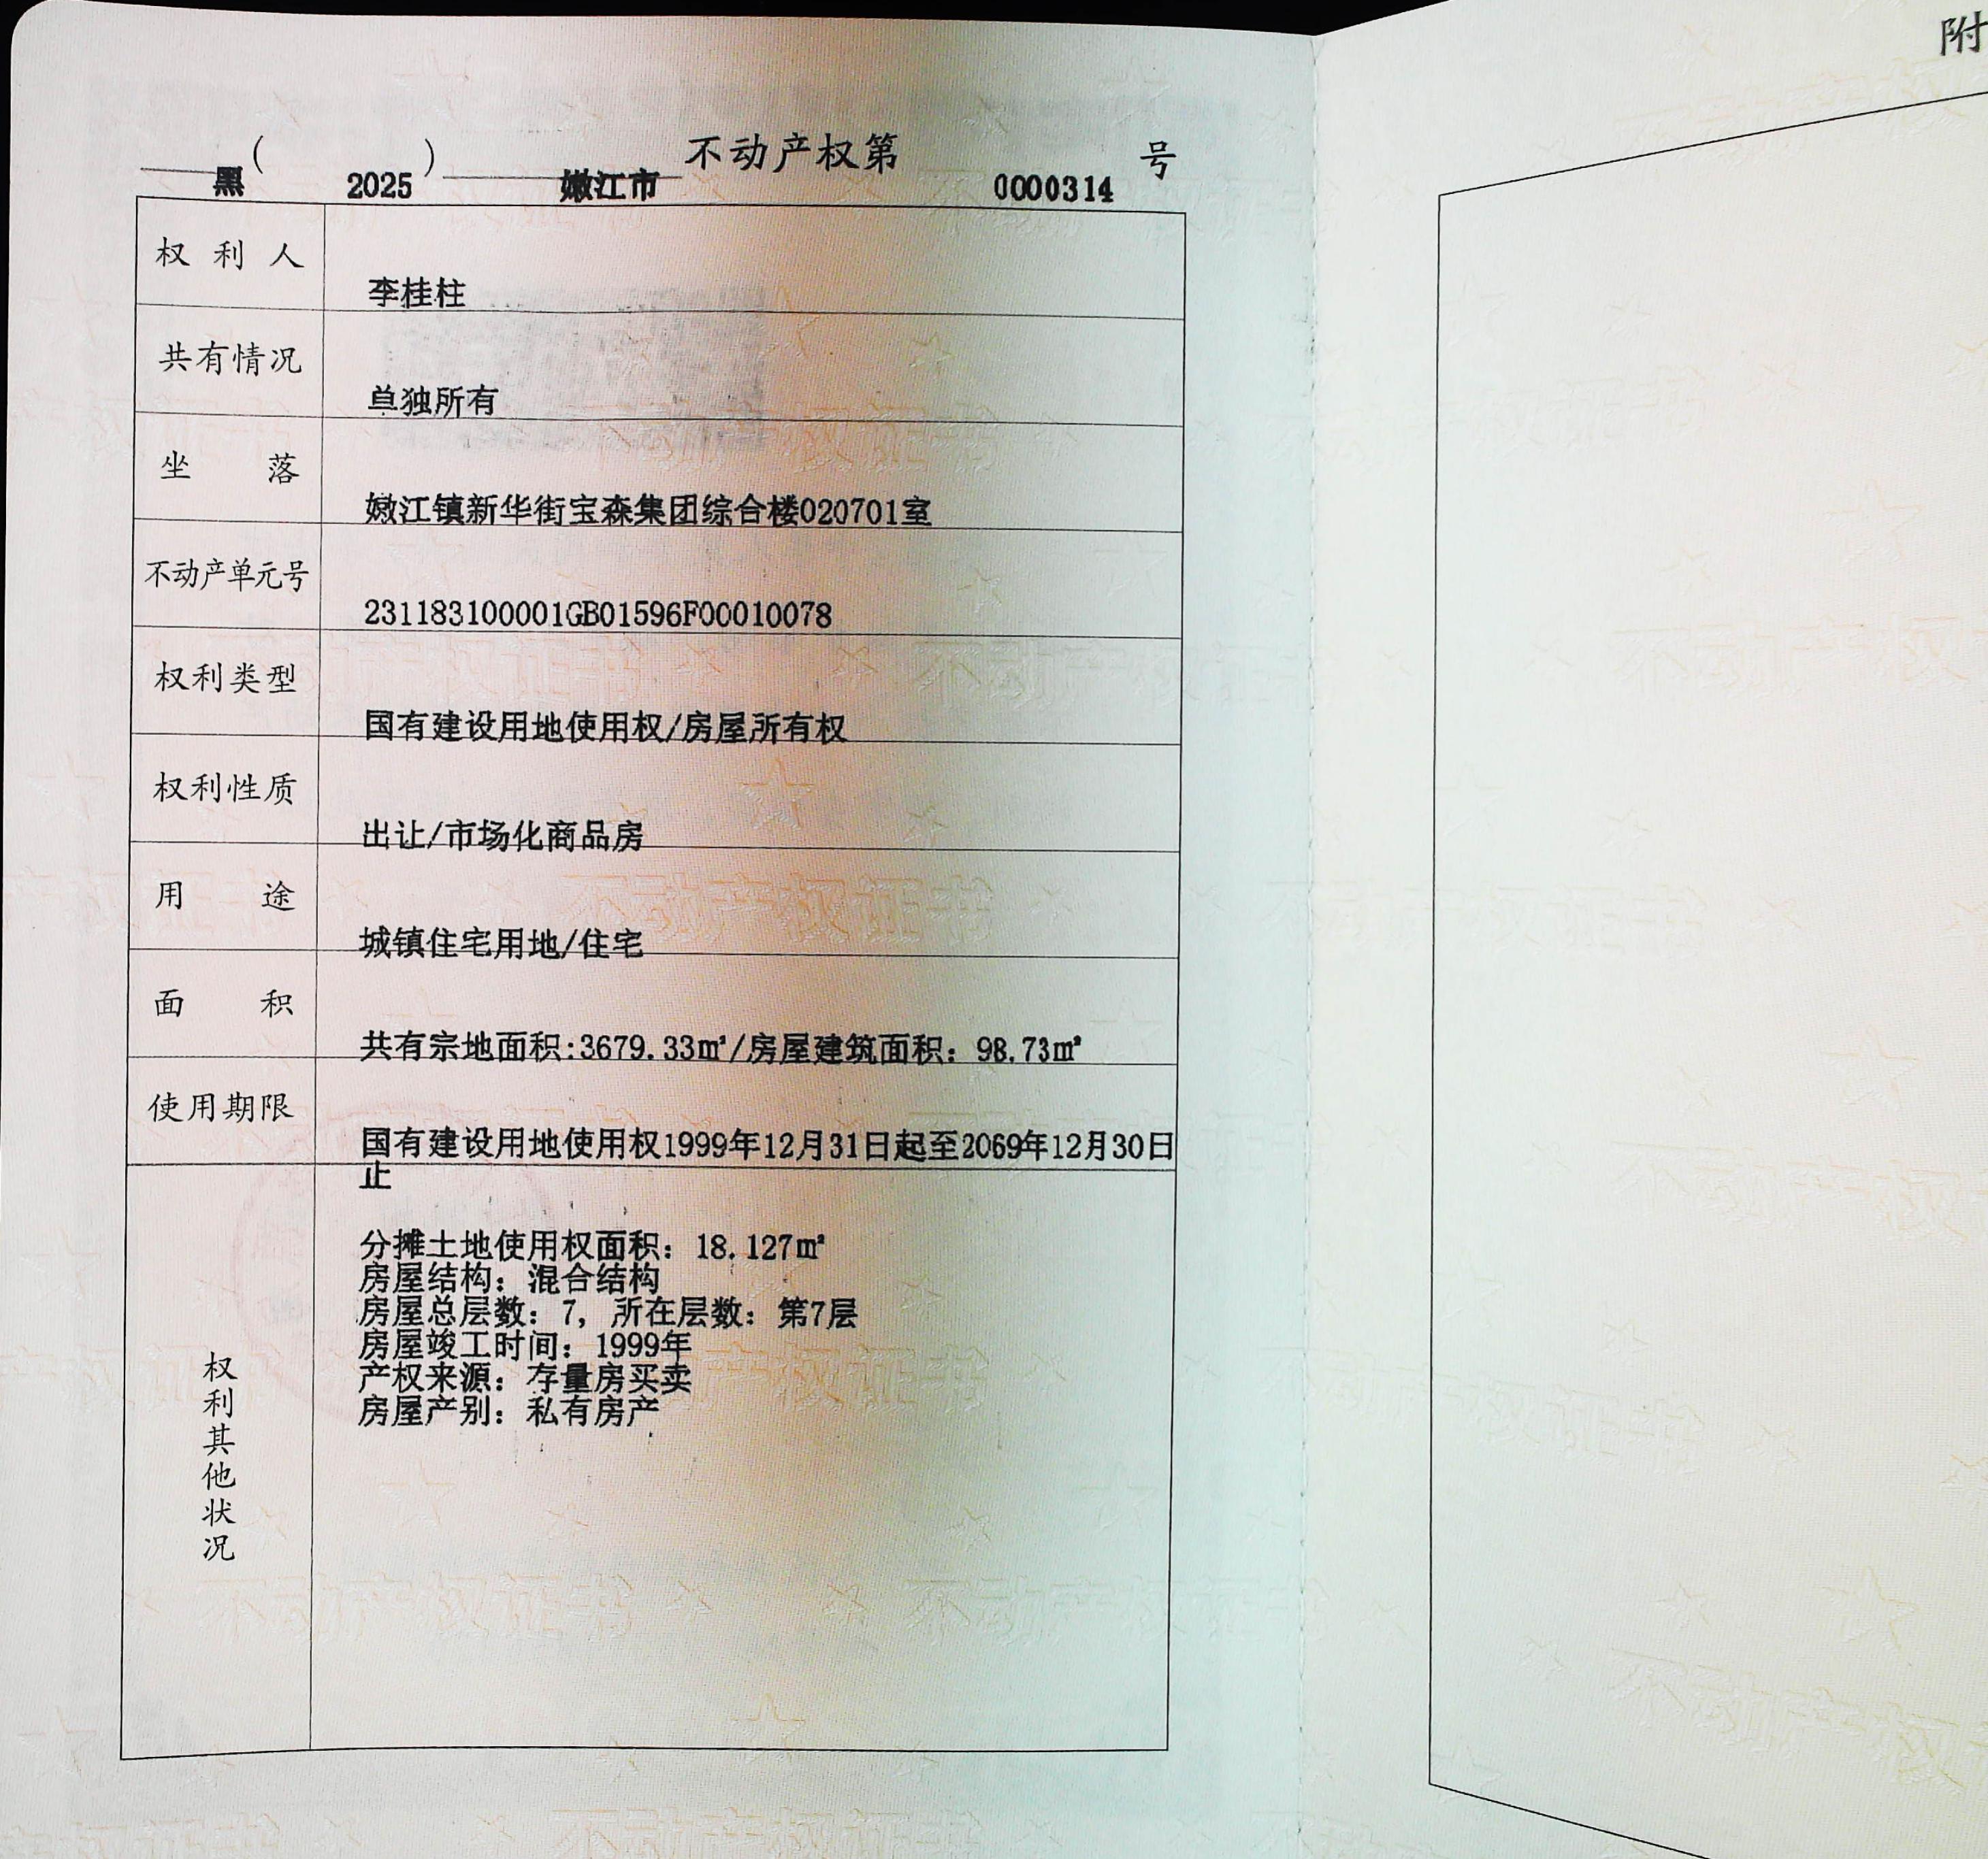 黑（2025）嫩江市不动产权第0000314号
附
权利人 李桂柱
共有情况 单独所有
坐落 嫩江镇新华街宝森集团综合楼020701室
不动产单元号 231183100001GB01596F00010078
权利类型 国有建设用地使用权/房屋所有权
权利性质 出让/市场化商品房
用途 城镇住宅用地/住宅
面积 共有宗地面积:3679.33㎡/房屋建筑面积：98.73㎡
使用期限 国有建设用地使用权1999年12月31日起至2069年12月30日
止
权利其他状况
分摊土地使用权面积：18.127㎡
房屋结构：混合结构
房屋总层数：7，所在层数：第7层
房屋竣工时间：1999年
产权来源：存量房买卖
房屋产别：私有房产